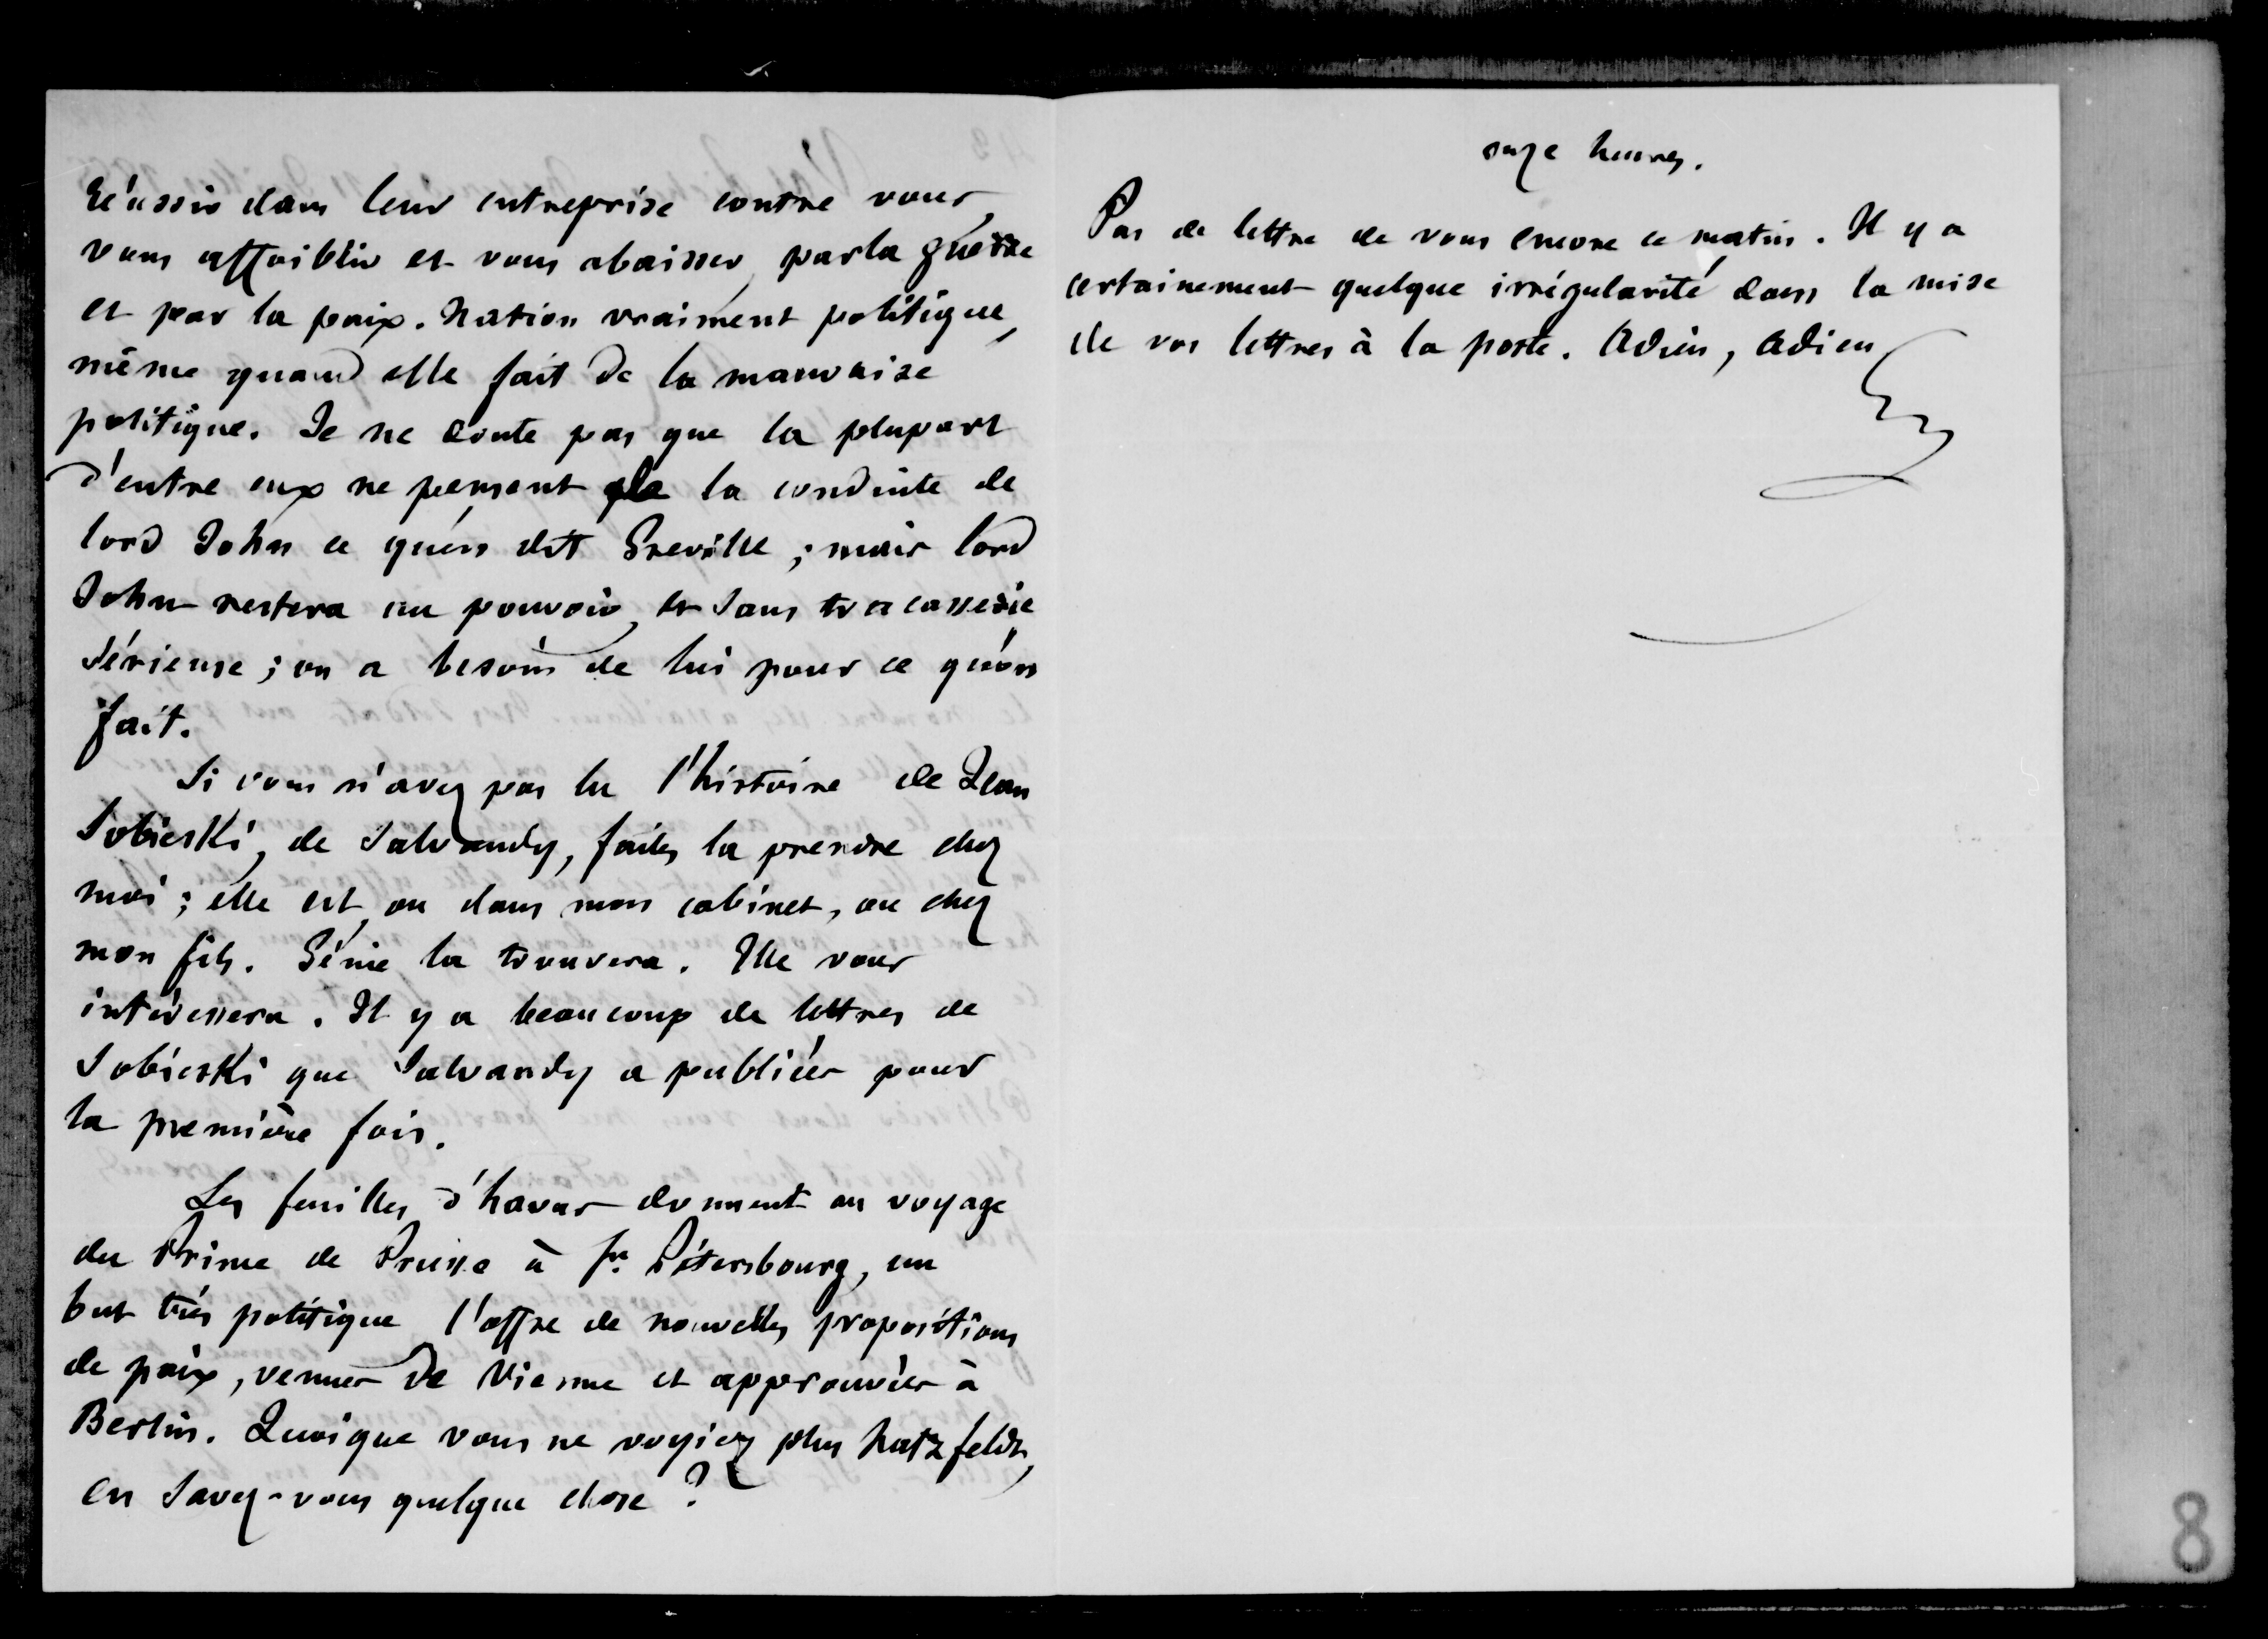 réussir dans leur entreprise contre vous,
vous affaiblir et vous abaisser, par la guerre
et par la paix. Nation vraiment politique,
même quand elle fait de la mauvaise
politique. Je ne doute pas que la plupart
d'entre eux ne pensent de la conduite de
lord John ce qu'en dit Greville ; mais lord
John restera au pouvoir, et sans tracasserie
sérieuse ; on a besoin de lui pour ce qu'on
fait.
Si vous n'avez pas lu l'histoire de Jean
Sobieski, de Salvandy, faites la prendre chez
moi ; elle est, ou dans mon cabinet, ou chez
mon fils. Génie la trouvera. Elle vous
intéressera. Il y a beaucoup de lettres de
Sobieski que Salvandy a publiées pour
la première fois.
Les feuilles d'havas donnent au voyage
du Prince de Prusse à St. Pétersbourg, un
but très politique l'offre de nouvelles propositions
de paix, venues de Vienne et approuvées à
Berlin. Quoique vous ne voyiez plus hatzfeldt,
en savez-vous quelque chose ?
onze heures.
Pas de lettre de vous encore ce matin. Il y a
certainement quelque irrégularité dans la mise
de vos lettres à la poste. Adieu, Adieu
8